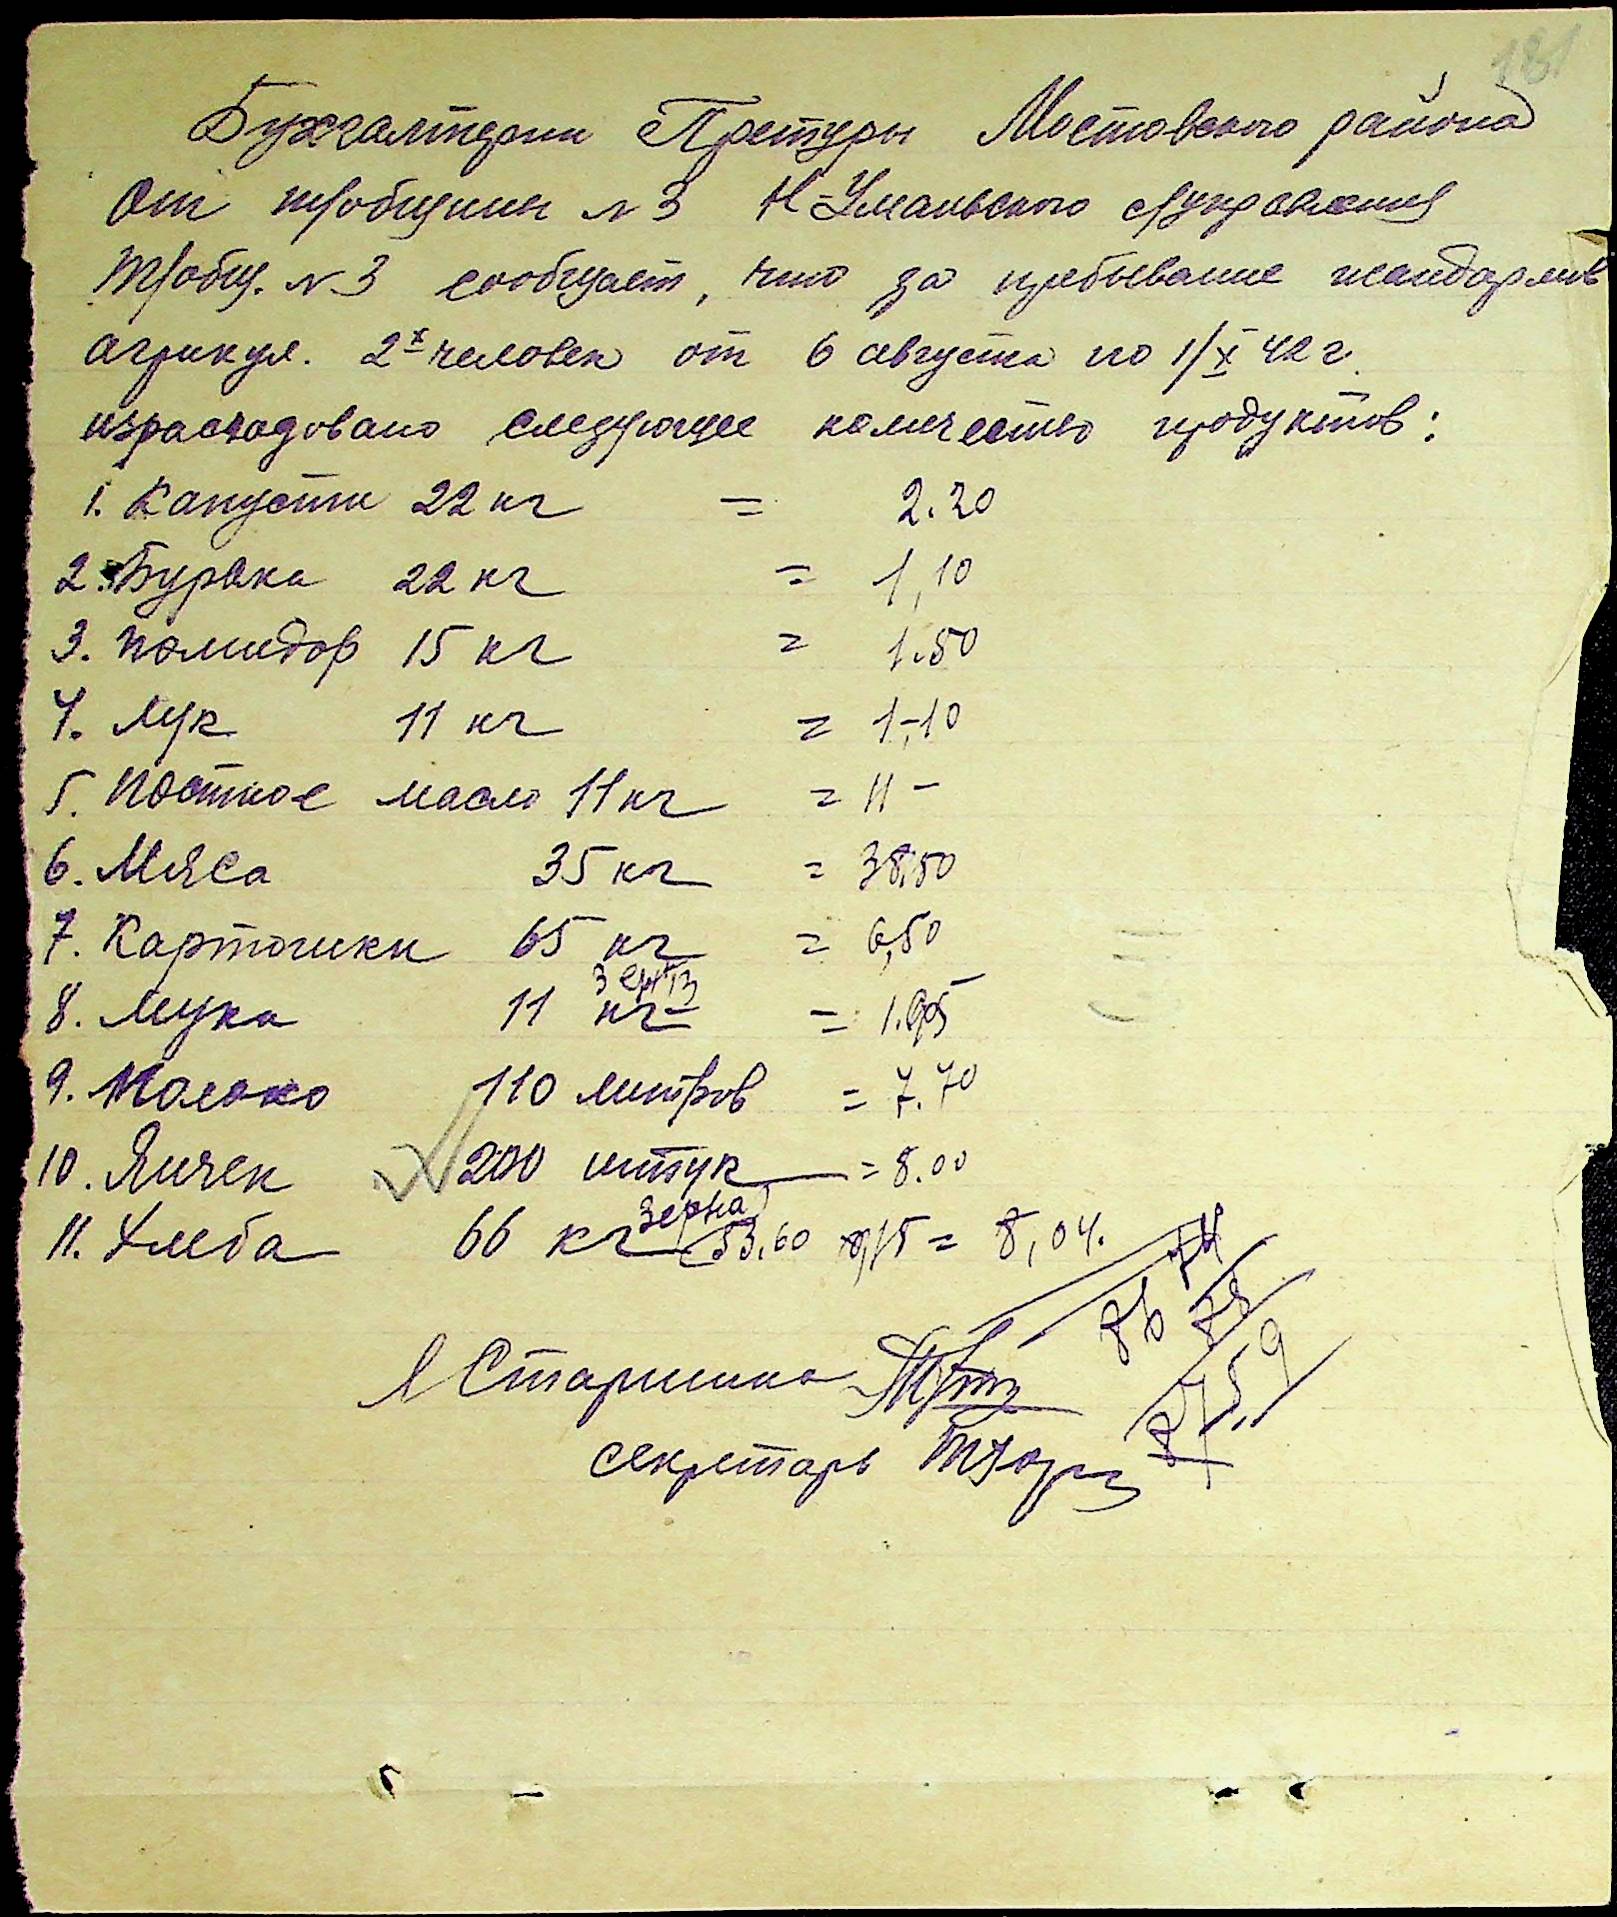 181
Бухгалтерии Претуры Мостовского района
От т/общины №3 Н-Уманьского с/управления
Т/общ. №3 сообщает, что за пребывание жандармов
агрикул. 2х человек от 6 августа по 1/X 42 г.
израсходовано следующее количество продуктов:
1. Капусти 22 кг = 2.20
2. Буряка 22 кг = 1,10
3. помидор 15 кг = 1.50
4. Лук 11 кг = 1,-10
5. Постное масло 11 кг = 11 -
6. Мяса 35 кг = 38,50
7. Картошки 65 кг = 6,50
8. Мука 11 кг =
9. Молоко 110 литров = 7.70
10. Яичек 200 штук = 8.00
11. Хлеба 66 кг зерна 53.60 0,15 = 8,04.
Старшина
секретарь